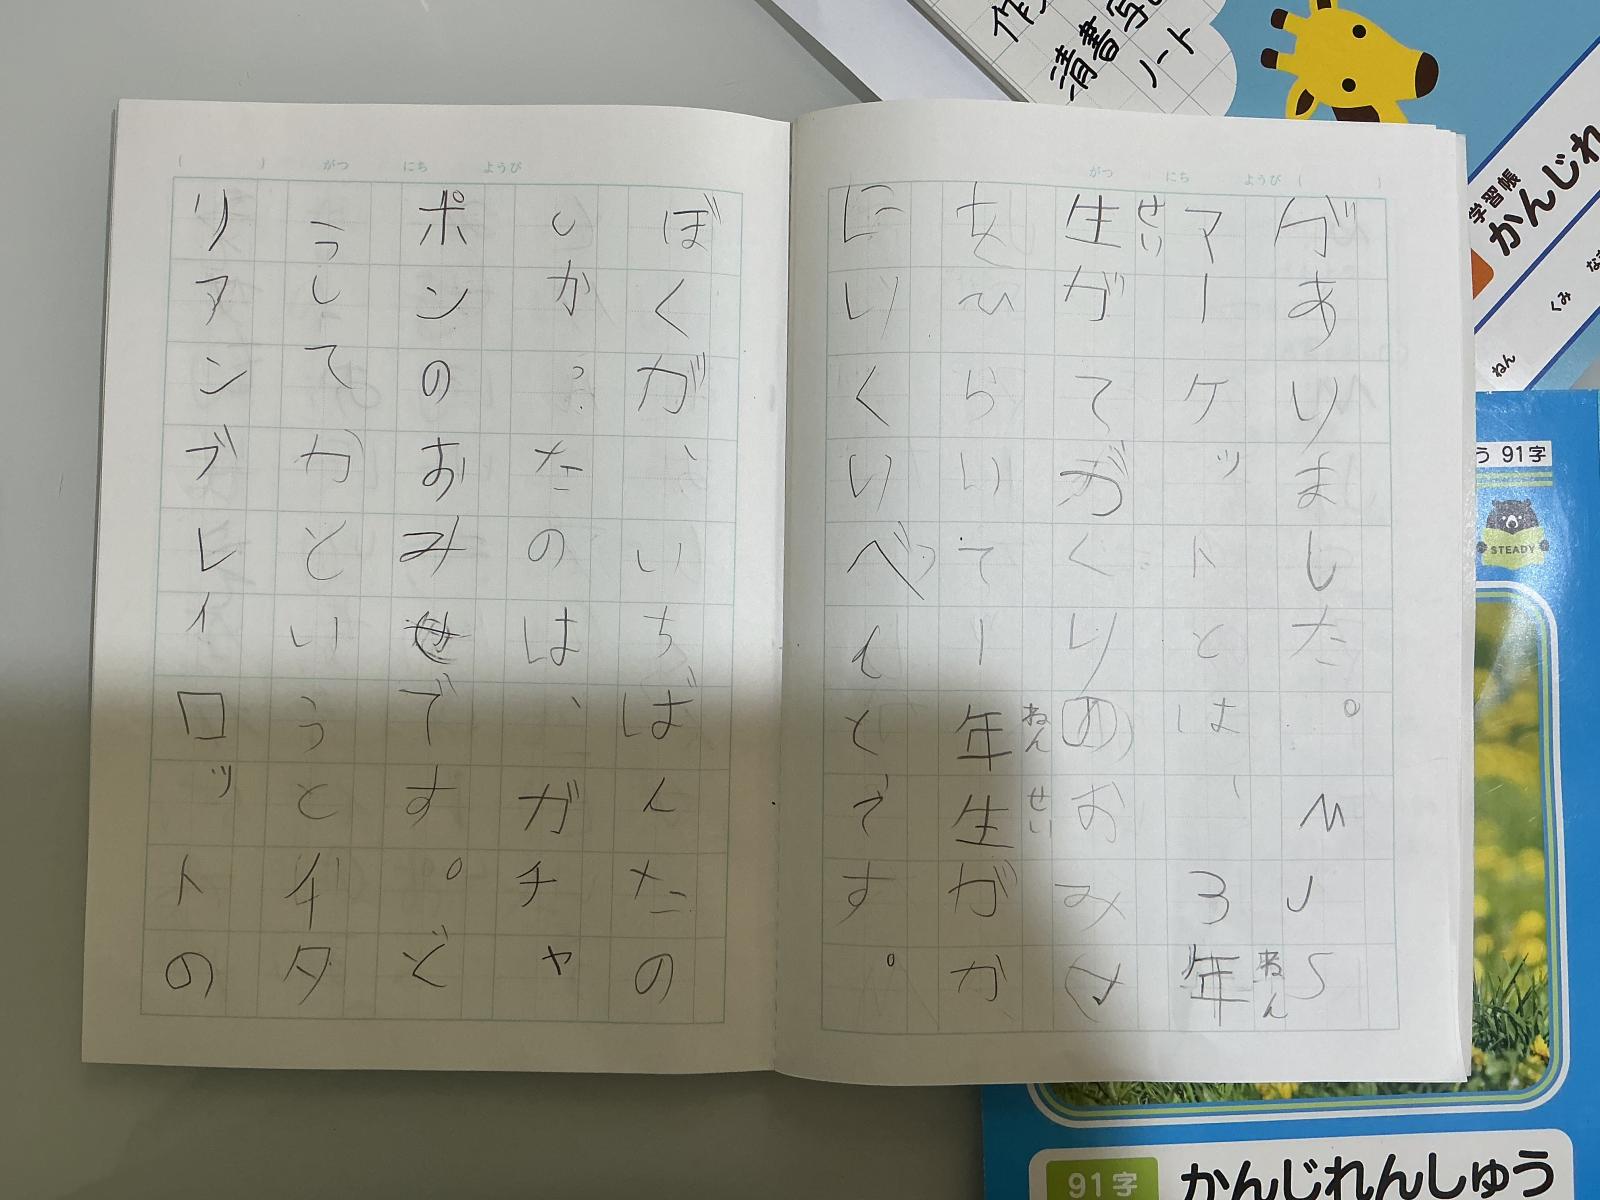 がつ にち ようび ( )
がありました。MJS
マーケットとは、3年
ねん
生がてづくりのおみせ
せい
をひらいて1年生がか
ねんせい
にいくいべんとです。
( ) がつ にち ようび
ぼくが、いちばんたの
しかったのは、ガチャ
ポンのおみせです。ど
うしてかというとギタ
リアンブレイロットの
ノート
学習帳
かんじれ
くみ
ねん
う 91字
STEADY
91字 かんじれんしゅう